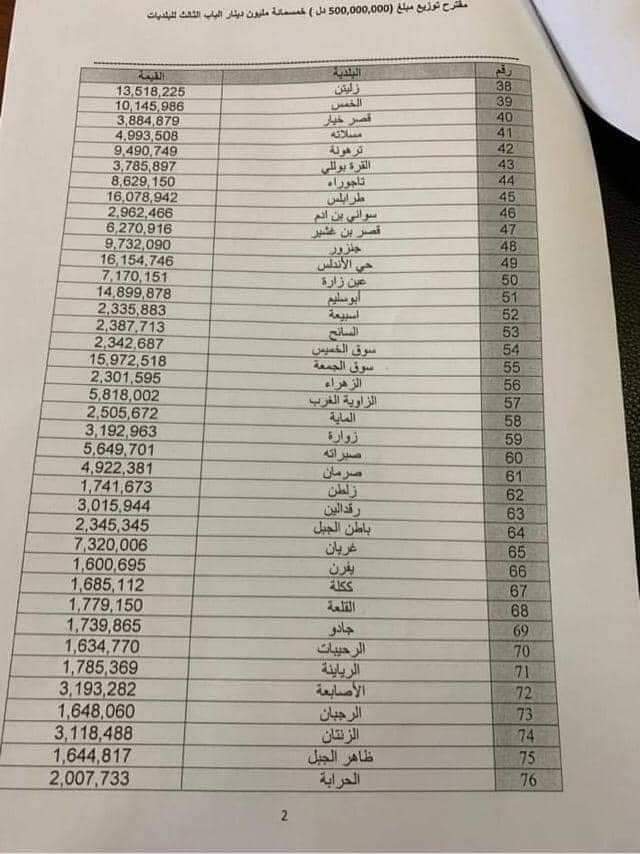 مقترح توزيع مبلغ (500,000,000 دل) خمسمائة مليون دينار الباب الثالث للبلديات
رقم البلدية القيمة
38 زليتن 13,518,225
39 الخمس 10,145,986
40 قصر خيار 3,884,879
41 مسلاته 4,993,508
42 ترهونة 9,490,749
43 القرة بوللي 3,785,897
44 تاجوراء 8,629,150
45 طرابلس 16,078,942
46 سواني بن ادم 2,962,466
47 قصر بن غشير 6,270,916
48 جنزور 9,732,090
49 حي الأندلس 16,154,746
50 عين زارة 7,170,151
51 أبوسليم 14,899,878
52 اسبيعة 2,335,883
53 السائح 2,387,713
54 سوق الخميس 2,342,687
55 سوق الجمعة 15,972,518
56 الزهراء 2,301,595
57 الزاوية الغرب 5,818,002
58 الماية 2,505,672
59 زوارة 3,192,963
60 صبراته 5,649,701
61 صرمان 4,922,381
62 زلطن 1,741,673
63 رقدالين 3,015,944
64 باطن الجبل 2,345,345
65 غريان 7,320,006
66 يفرن 1,600,695
67 ككلة 1,685,112
68 القلعة 1,779,150
69 جادو 1,739,865
70 الرحيبات 1,634,770
71 الرياينة 1,785,369
72 الأصابعة 3,193,282
73 الرجبان 1,648,060
74 الزنتان 3,118,488
75 ظاهر الجبل 1,644,817
76 الحرابة 2,007,733
2